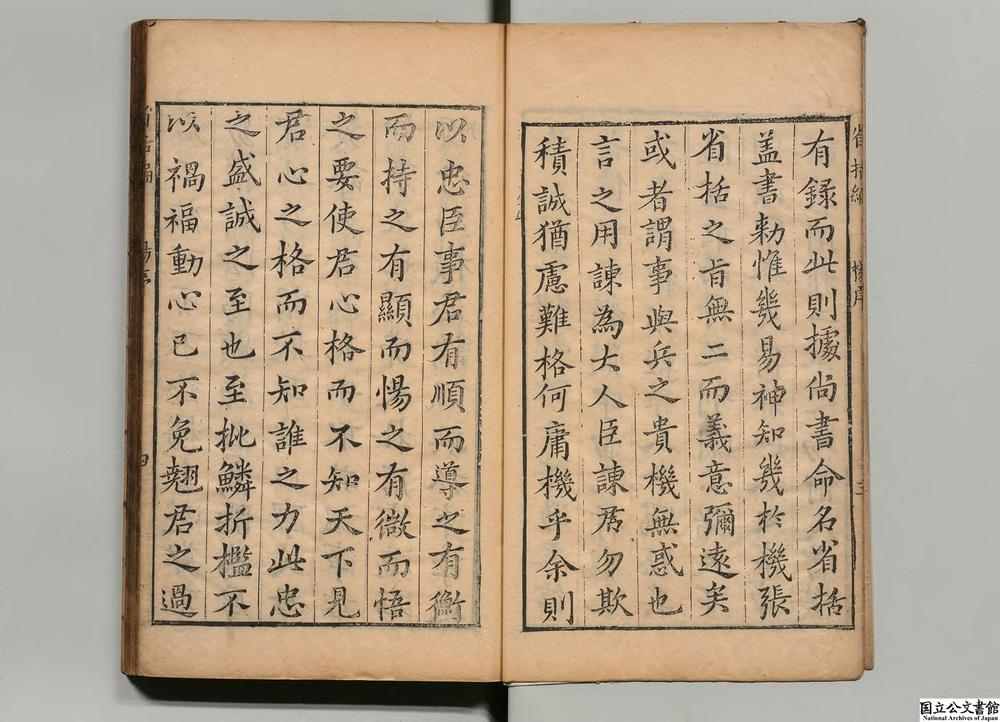 有録而此則據尚書命名省括
蓋書勑惟幾易神知幾於機張
省括之旨無二而義意彌遠矣
或者謂事與兵之貴機無惑也
言之用諫為大人臣諫君勿欺
積誠猶慮難格何庸機乎余則
以忠臣事君有順而導之有衡
而持之有顯而惕之有微而悟
之要使君心格而不知天下見
君心之格而不知誰之力此忠
之盛誠之至也至批鱗折檻不
以禍福動心已不免翹君之過
省括編
楊序
三
四
国立公文書館
National Archives of Japan